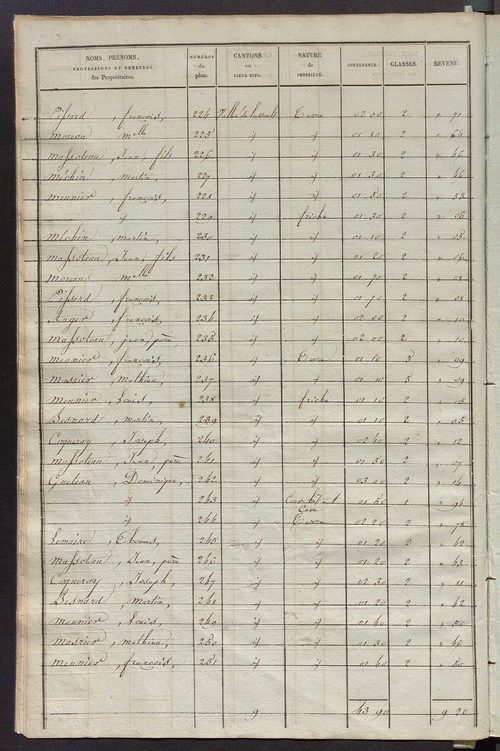 NOMS, PRÉNOMS, PROFESSIONS ET DEMEURES des Propriétaires. NUMÉROS du plan. CANTONS ou LIEUX DITS. NATURE de PROPRIÉTÉ. CONTENANCE. CLASSES. REVENU.
Pissard, françois, 224 Terre 02 00 2 " 71
moreau, mlle 225 id id 01 80 2 " 64
massoteau, Jean fils 226 id id 01 30 2 " 46
méchin, martin, 227 id id 01 30 2 " 46
meunier, françois, 228 id id 01 50 2 " 53
id 229 id friche 01 30 2 " 06
méchin, martin, 230 id id 01 10 2 " 05
massoteau, Jean, fils 231 id id 01 20 2 " 06
moreau, mlle 232 id id 01 70 2 " 08
Pissard, françois, 233 id id 01 70 2 " 08
Auger, françois, 234 id id 02 00 2 " 10
massoteau, jean, père 235 id id 02 00 2 " 10
meunier, françois, 236 id Terre 01 10 3 " 09
masrier, mathieu, 237 id id 01 10 3 " 09
meunier, Louis, 238 id friche 01 10 2 " 05
Besnard, martin, 239 id id 01 10 2 " 05
Coqueroy, Joseph, 240 id id 02 40 2 " 12
massoteau, Jean, père 241 id id 01 50 2 " 07
Guéteau, Dominique, 242 id id 03 00 2 " 14
id 243 id 01 50 1 " 96
id 244 id Terre 02 20 2 " 78
Lemaire, Thomas, 245 id id 01 20 2 " 42
massoteau, Jean, père 246 id id 01 20 2 " 43
Coqueroy, Joseph, 247 id id 02 30 2 " 81
Besnard, martin, 248 id id 01 20 2 " 42
meunier, Louis, 249 id id 01 40 2 " 50
masrier, mathieu, 250 id id 01 30 2 " 46
meunier, françois, 251 id id 01 40 2 " 50
43 90 9 20